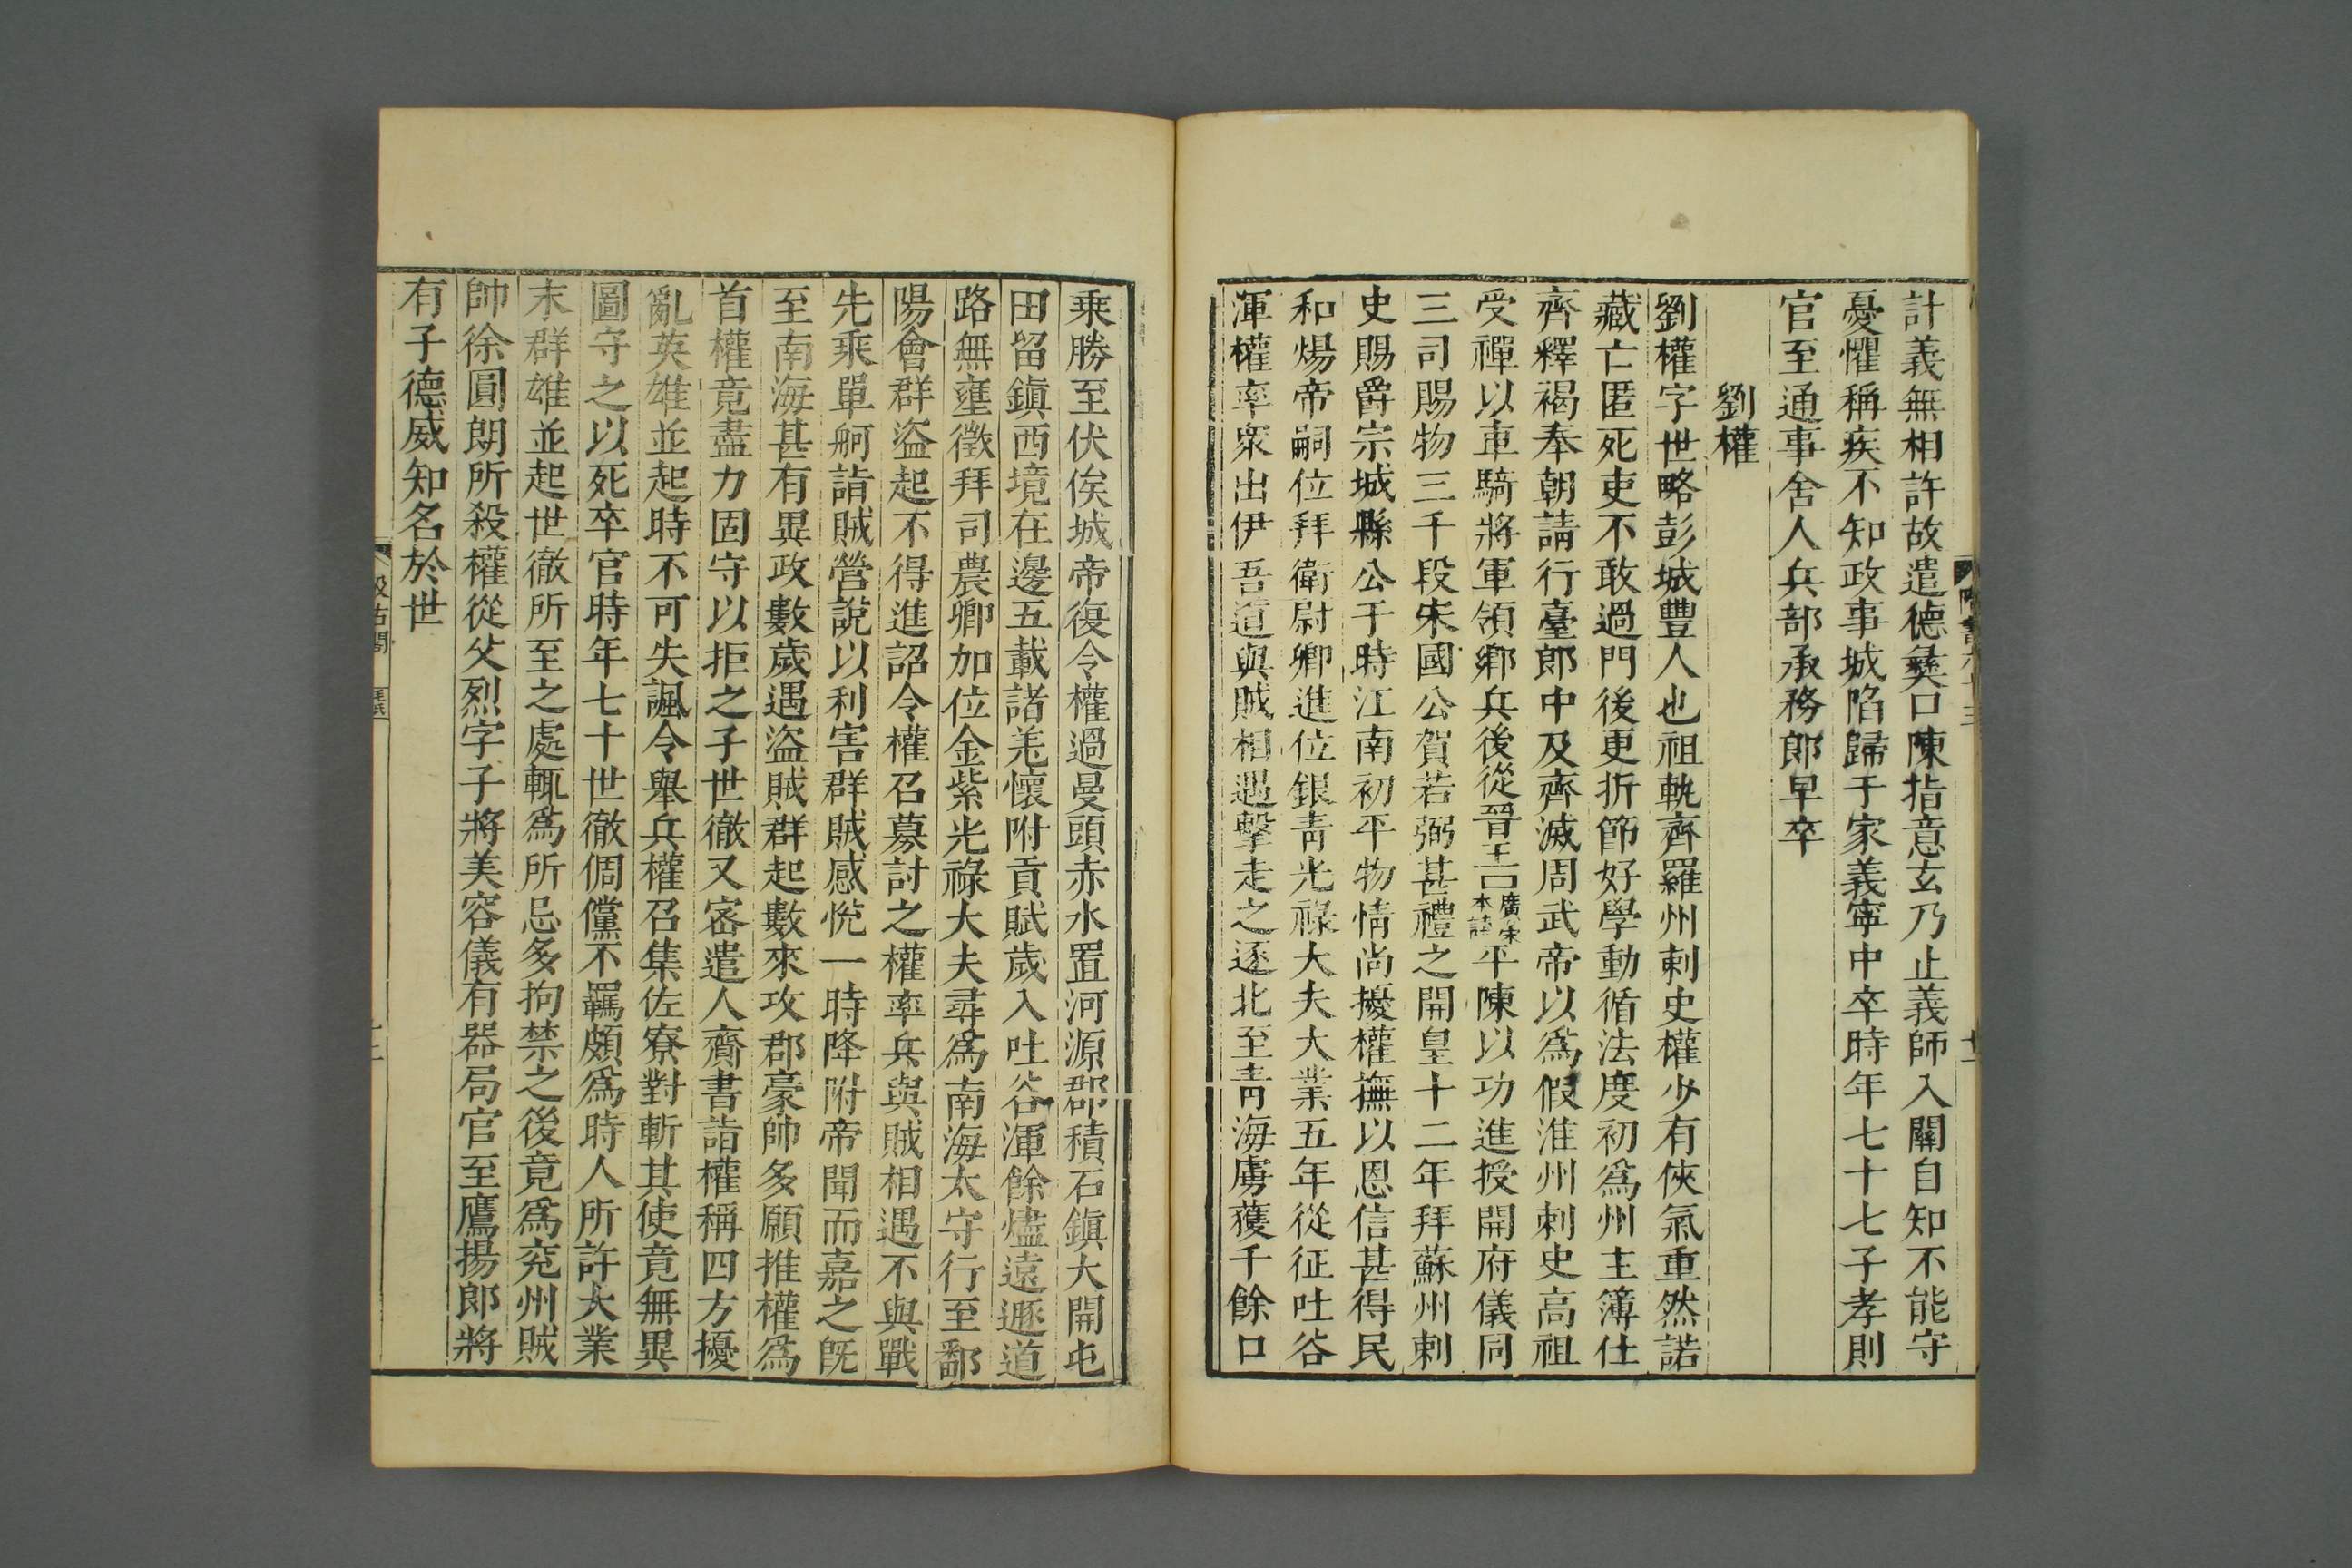 計義無相許故遣德彝口陳指意玄乃止義師入關自知不能守
憂懼稱疾不知政事城陷歸于家義寧中卒時年七十七子孝則
官至通事舍人兵部承務郎早卒
劉權
劉權字世略彭城豐人也祖軌齊羅州刺史權少有俠氣重然諾
藏亡匿死吏不敢過門後更折節好學動循法度初爲州主簿仕
齊釋褐奉朝請行臺郎中及齊滅周武帝以爲假淮州刺史高祖
受禪以車騎將軍領鄉兵後從晉王口廣宋本諱平陳以功進授開府儀同
三司賜物三千段宋國公賀若弼甚禮之開皇十二年拜蘇州刺
史賜爵宗城縣公于時江南初平物情尚擾權撫以恩信甚得民
和煬帝嗣位拜衛尉卿進位銀青光祿大夫大業五年從征吐谷
渾權率衆出伊吾道與賊相遇擊走之逐北至青海虜獲千餘口
乘勝至伏俟城帝復令權過曼頭赤水置河源郡積石鎮大開屯
田留鎮西境在邊五載諸羌懷附貢賦歲入吐谷渾餘燼遠遯道
路無壅徵拜司農卿加位金紫光祿大夫尋爲南海太守行至鄱
陽會群盜起不得進詔令權召募討之權率兵與賊相遇不與戰
先乘單舸詣賊營說以利害群賊感悅一時降附帝聞而嘉之旣
至南海甚有異政數歲遇盜賊群起數來攻郡豪帥多願推權爲
首權竟盡力固守以拒之子世徹又密遣人齎書詣權稱四方擾
亂英雄並起時不可失諷令舉兵權召集佐寮對斬其使竟無異
圖守之以死卒官時年七十世徹倜儻不羈頗爲時人所許大業
末群雄並起世徹所至之處輒爲所忌多拘禁之後竟爲兗州賊
帥徐圓朗所殺權從父烈字子將美容儀有器局官至鷹揚郎將
有子德威知名於世